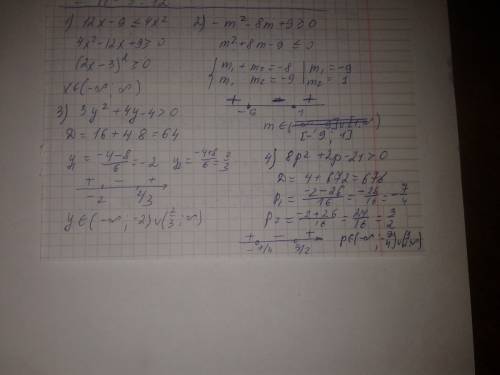 1) 12x - 9 ≤ 4x²
4x² - 12x + 9 ≥ 0
(2x - 3)² ≥ 0
x ∈ (-∞; ∞)
2) -m² - 8m + 9 ≥ 0
m² + 8m - 9 ≤ 0
{ m₁ + m₂ = -8 | m₁ = -9
m₁ m₂ = -9 | m₂ = 1
+ - +
-9 1
m ∈ [-9; 1]
3) 3y² + 4y - 4 > 0
D = 16 + 48 = 64
y₁ = (-4-8)/6 = -2 y₂ = (-4+8)/6 = 2/3
+ - +
-2 2/3
y ∈ (-∞; -2) ∪ (2/3; ∞)
4) 8p² + 2p - 21 > 0
D = 4 + 672 = 676
p₁ = (-2-26)/16 = -28/16 = -7/4
p₂ = (-2+26)/16 = 24/16 = 3/2
+ - +
-7/4 3/2
p ∈ (-∞; -7/4) ∪ (3/2; ∞)